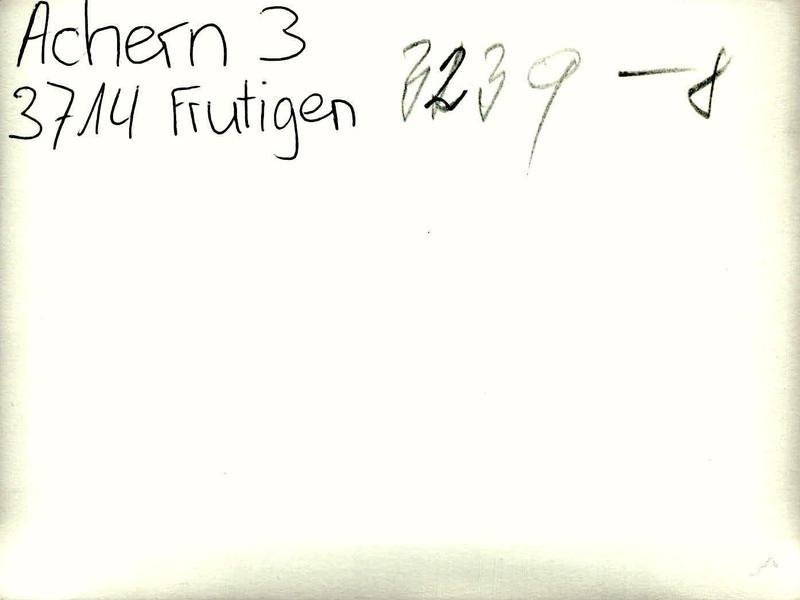 Achern 3
3714 Frutigen
3239 - 8